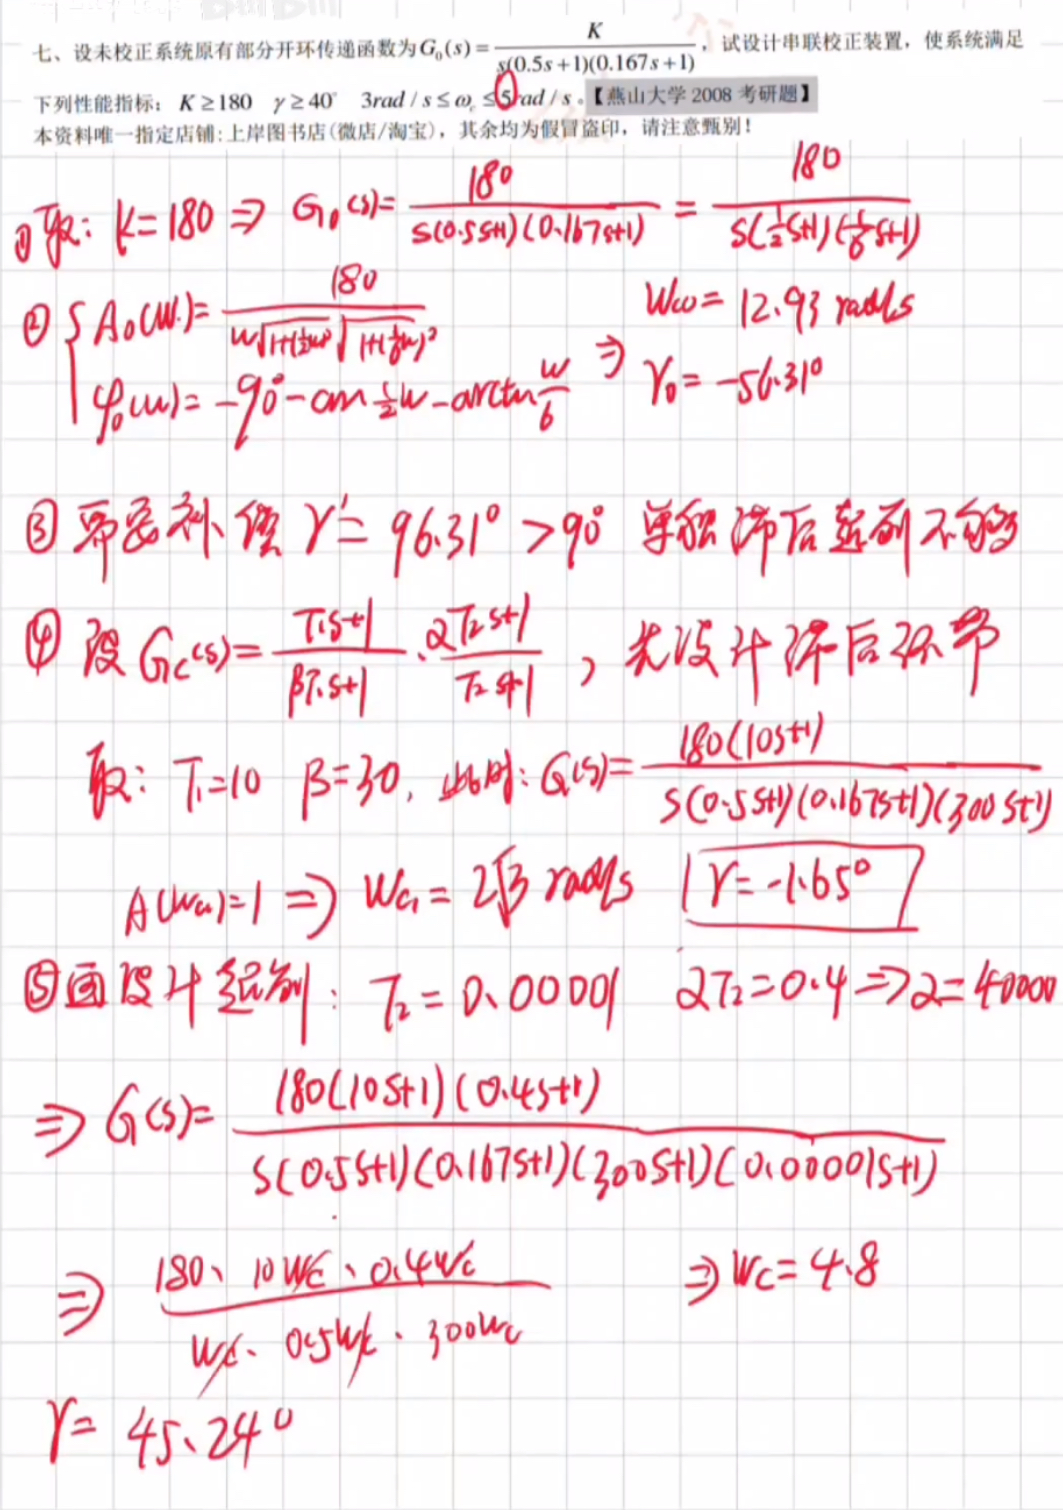 七、设未校正系统原有部分开环传递函数为G₀(s)=K/(s(0.5s+1)(0.167s+1))，试设计串联校正装置，使系统满足
下列性能指标：K≥180 γ≥40° 3rad/s≤ω_c≤5rad/s。【燕山大学2008考研题】
本资料唯一指定店铺:上岸图书店(微店/淘宝)，其余均为假冒盗印，请注意甄别!
①取: K=180 ⇒ G₀(s)=180/(s(0.5s+1)(0.167s+1)) = 180/(s(1/2s+1)(1/6s+1))
② { A₀(w)=180/(w√(1+(1/2w)²)√(1+(1/6w)²)) ⇒ Wc₀=12.93 rad/s
φ₀(w)=-90°-arctan 1/2w-arctan w/6 γ₀=-56.31°
③需要补偿 γ'=96.31°>90° 单独滞后超前不够
④设 Gc(s)=(T₁s+1)/(βT₁s+1)·(αT₂s+1)/(T₂s+1)，先设计滞后环节
取: T₁=10 β=30, 此时: G(s)=180(10s+1)/(s(0.5s+1)(0.167s+1)(300s+1))
A(Wc₁)=1 ⇒ Wc₁=2√3 rad/s γ=-1.65°
⑤再设计超前: T₂=0.00001 αT₂=0.4⇒α=40000
⇒ G(s)=180(10s+1)(0.4s+1)/(s(0.5s+1)(0.167s+1)(300s+1)(0.00001s+1))
⇒ 180·10Wc·0.4Wc/(Wc·0.5Wc·300Wc) ⇒Wc=4.8
γ=45.24°